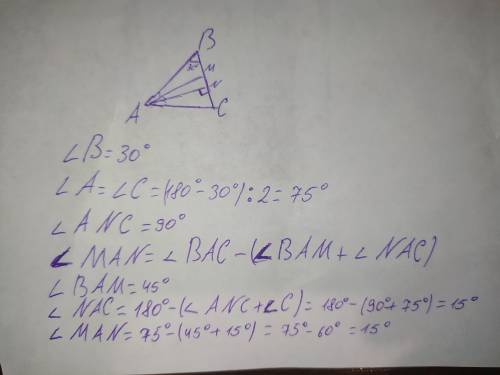 B
30°
M
N
A
C
∠B=30°
∠A=∠C=(180°-30°):2=75°
∠ANC=90°
∠MAN=∠BAC-(∠BAM+∠NAC)
∠BAM=45°
∠NAC=180°-(∠ANC+∠C)=180°-(90°+75°)=15°
∠MAN=75°-(45°+15°)=75°-60°=15°